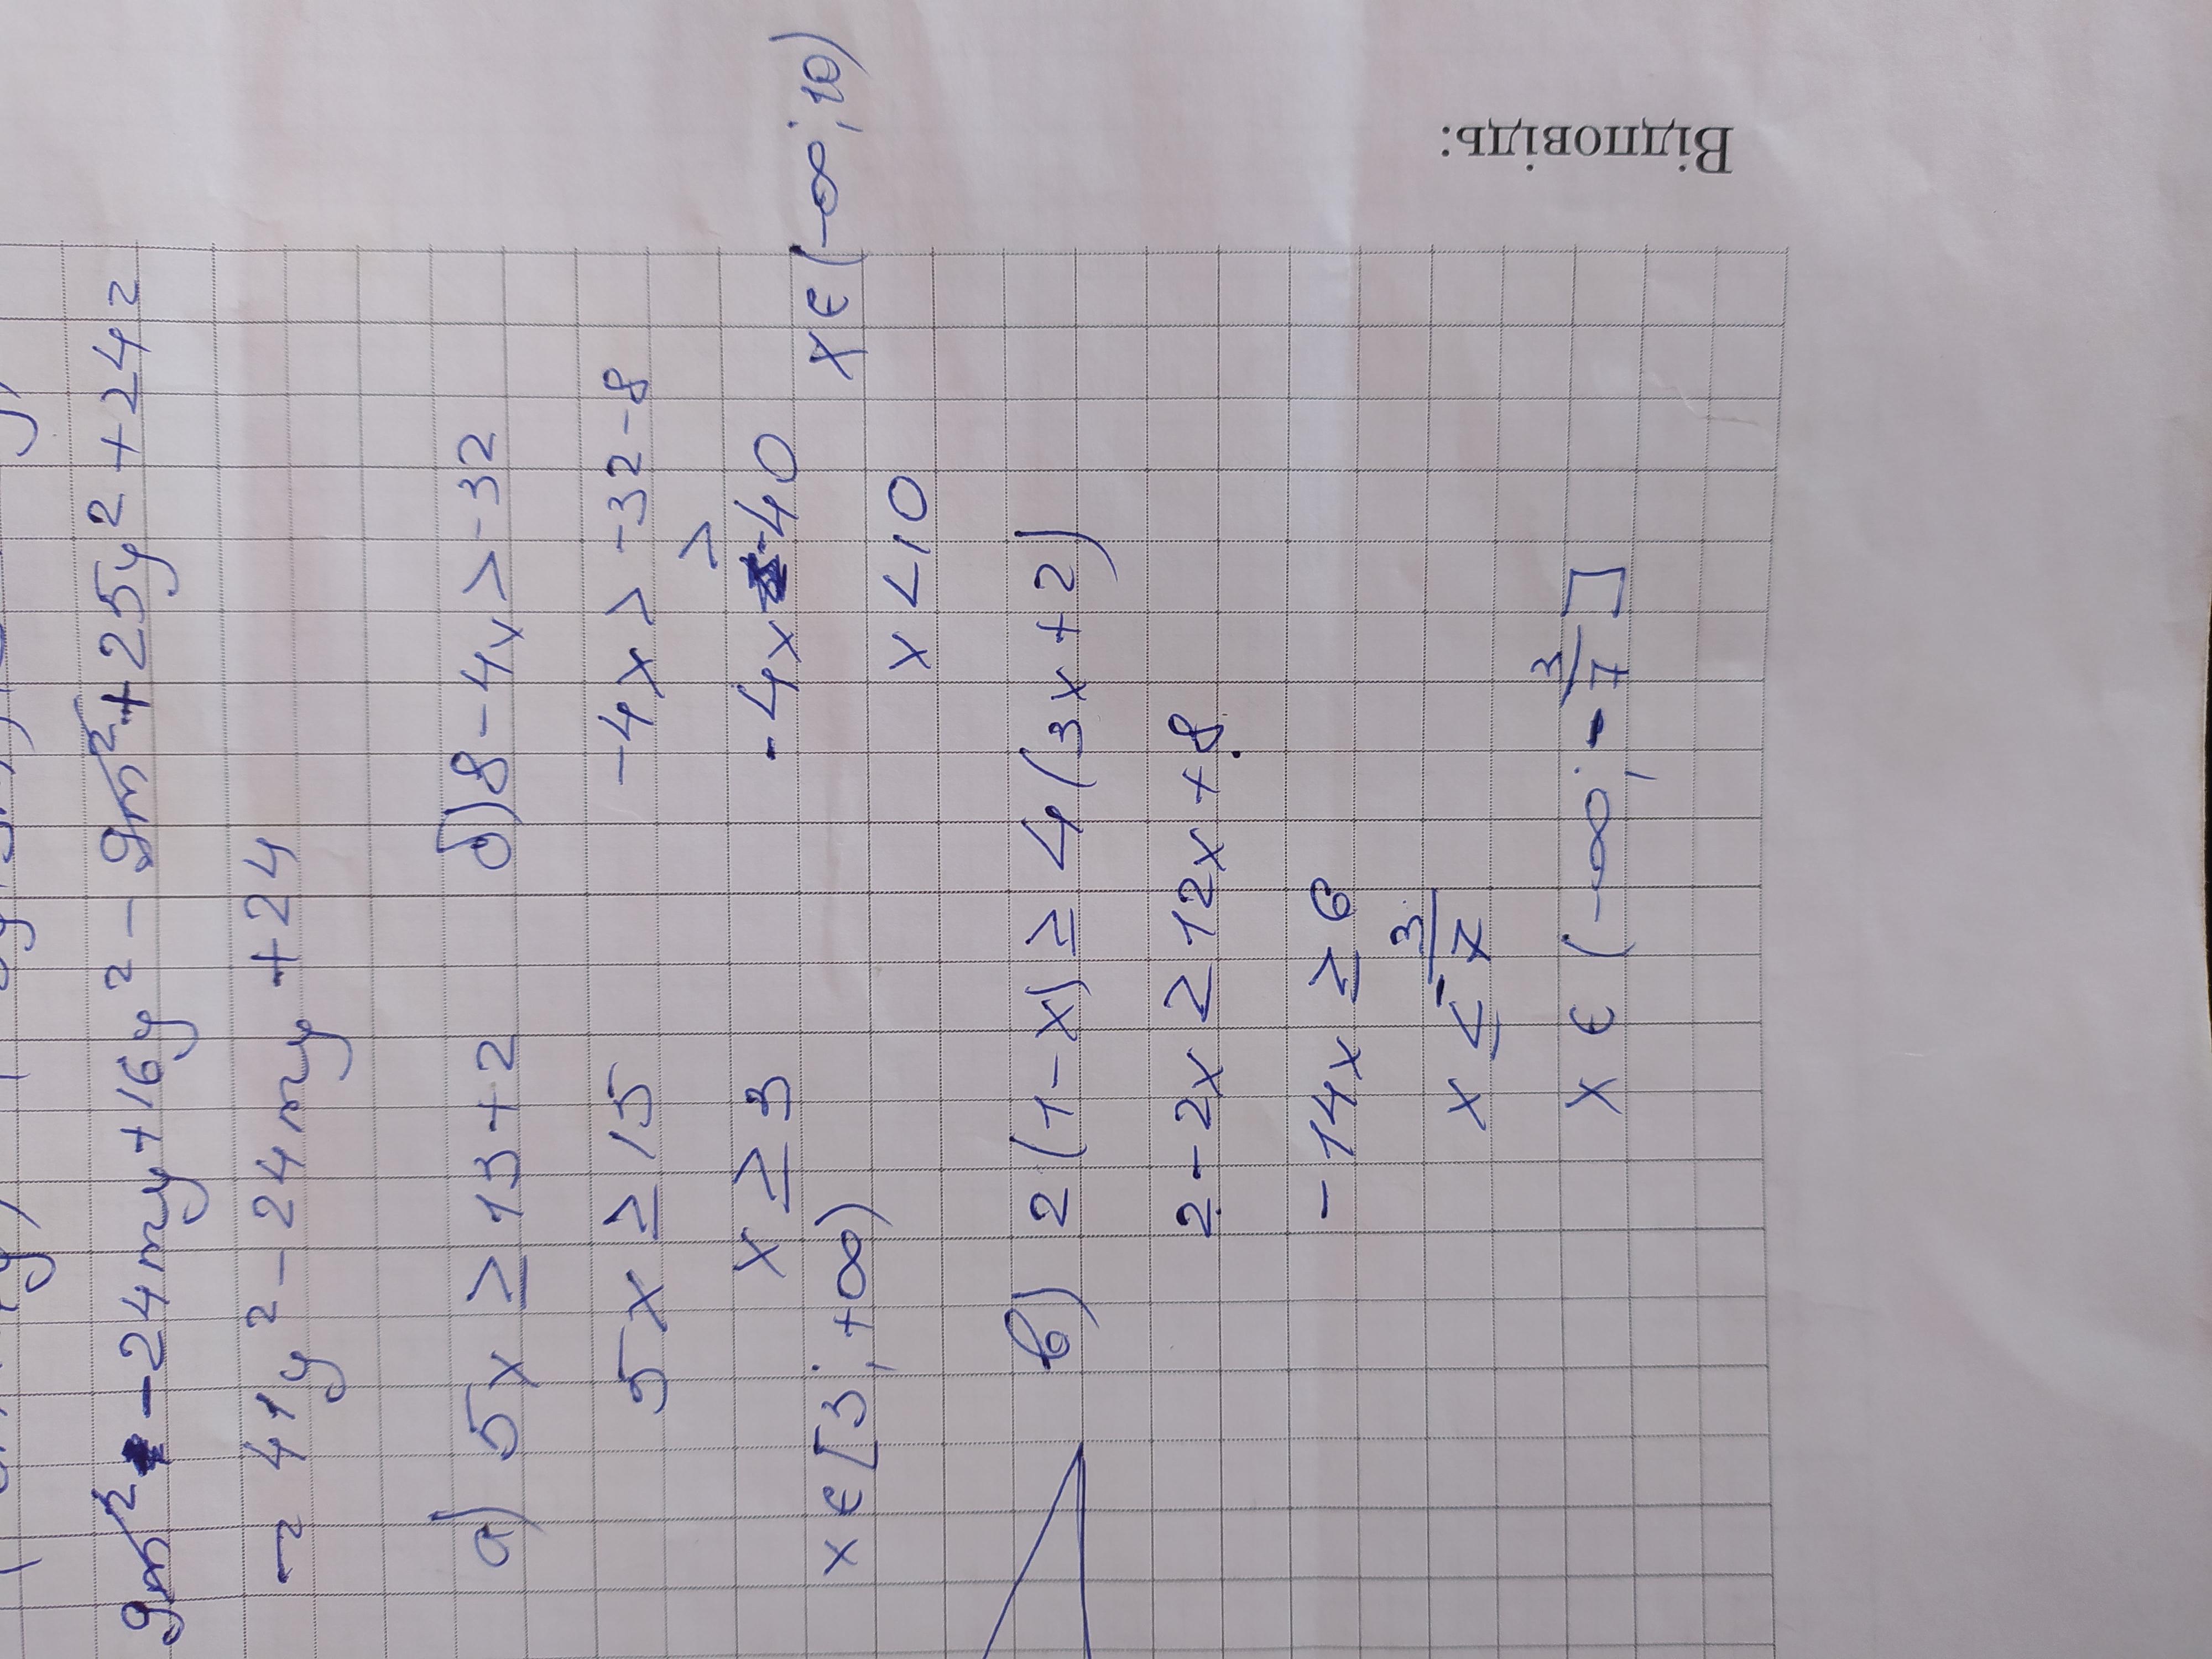 9m² - 24my + 16y² - 9m² + 25y² + 24 =
= 41y² - 24my + 24
а) 5x ≥ 13 + 2
5x ≥ 15
x ≥ 3
x ∈ [3; +∞)
б) 8 - 4x > -32
-4x > -32 - 8
-4x > -40
x < 10
x ∈ (-∞; 10)
в) 2(1 - x) ≥ 4(3x + 2)
2 - 2x ≥ 12x + 8
-14x ≥ 6
x ≤ -3/7
x ∈ (-∞; -3/7]
Відповідь: